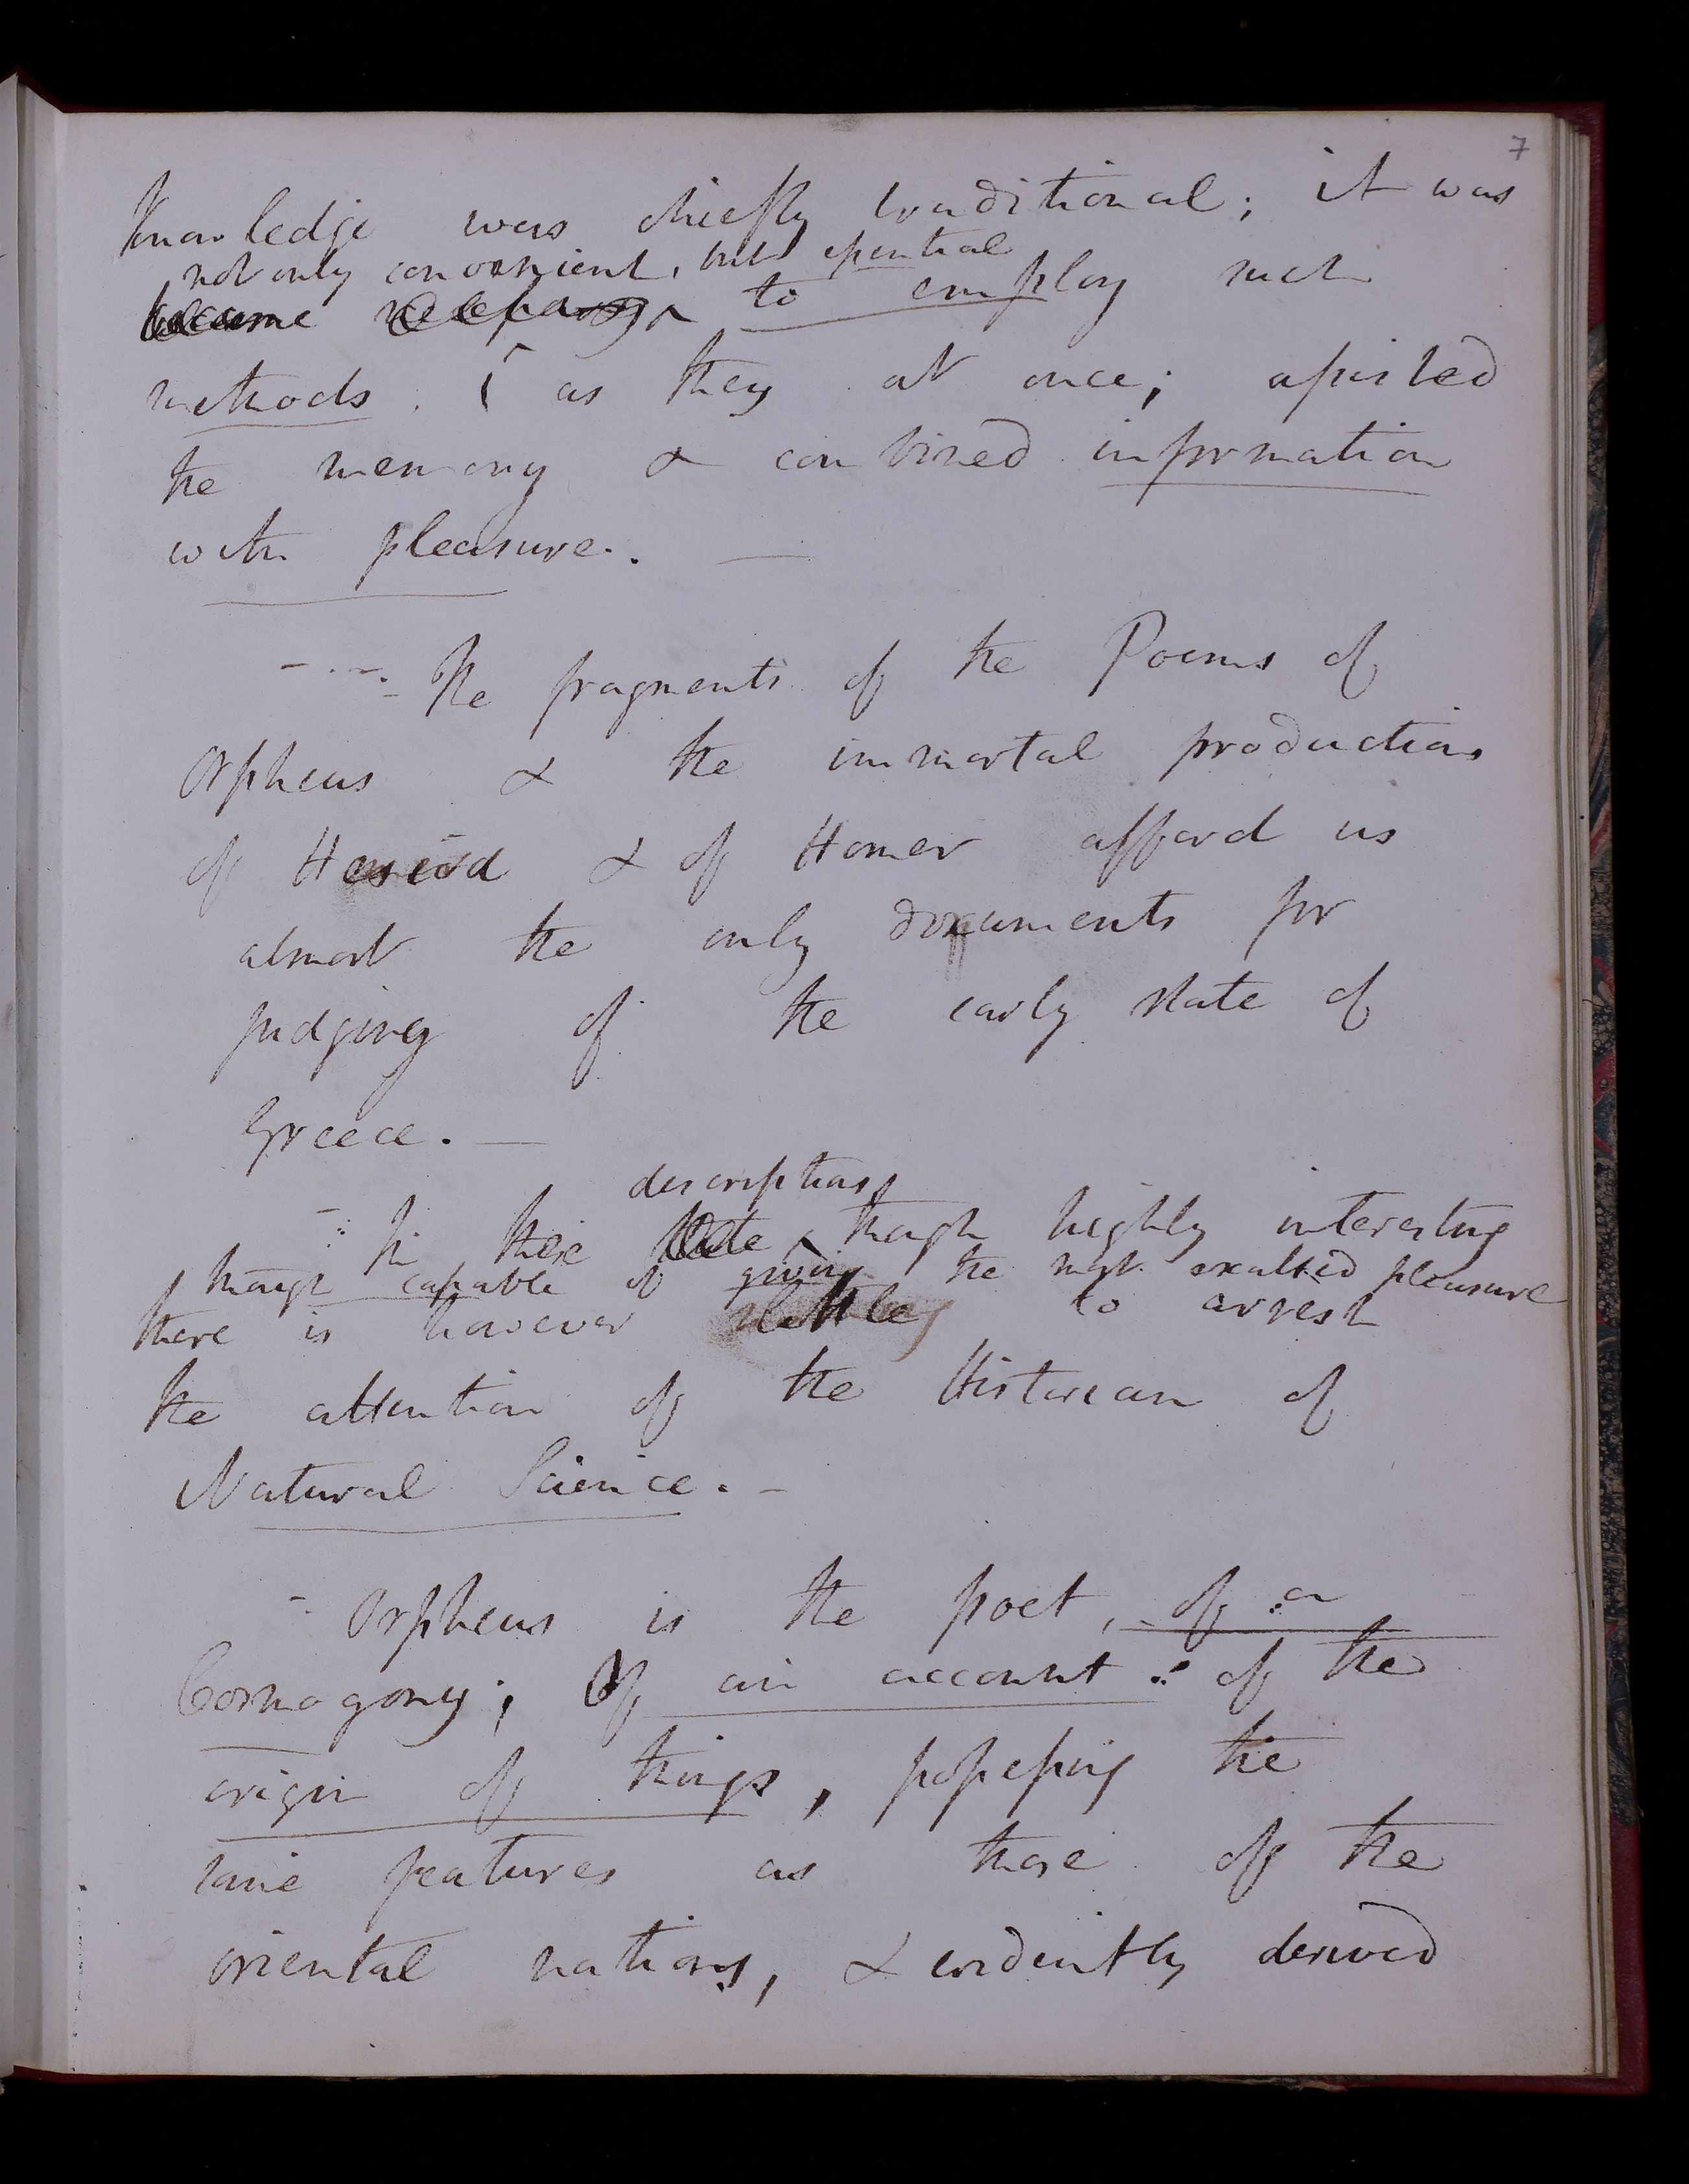 7
Knowledge was chiefly traditional; it was
not only convenient, but essential
became necessary to employ such
methods. as they at once; assisted
the memory & combined information
with pleasure. —
The fragments of the Poems of
Orpheus & the immortal productions
of Hesiod & of Homer afford us
almost the only documents for
judging of the early state of
Greece. —
descriptions
In these though highly interesting
though capable of giving the most exalted pleasure
there is however little to arrest
the attention of the Historian of
Natural Science. -
Orpheus is the poet, of a
Cosmogony; Of an account of the
origin of things, possessing the
same features as those of the
oriental nations, & evidently derived